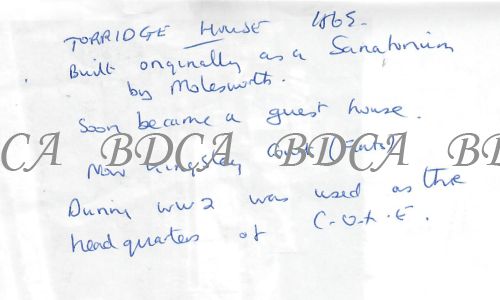 TORRIDGE HOUSE 1865.
Built originally as a Sanatorium
by Molesworth.
Soon became a guest house.
CA BDCA BDCA BD
Now Kingsley Court (Flats)
During WW2 was used as the
headquarters of C.O.X.E.